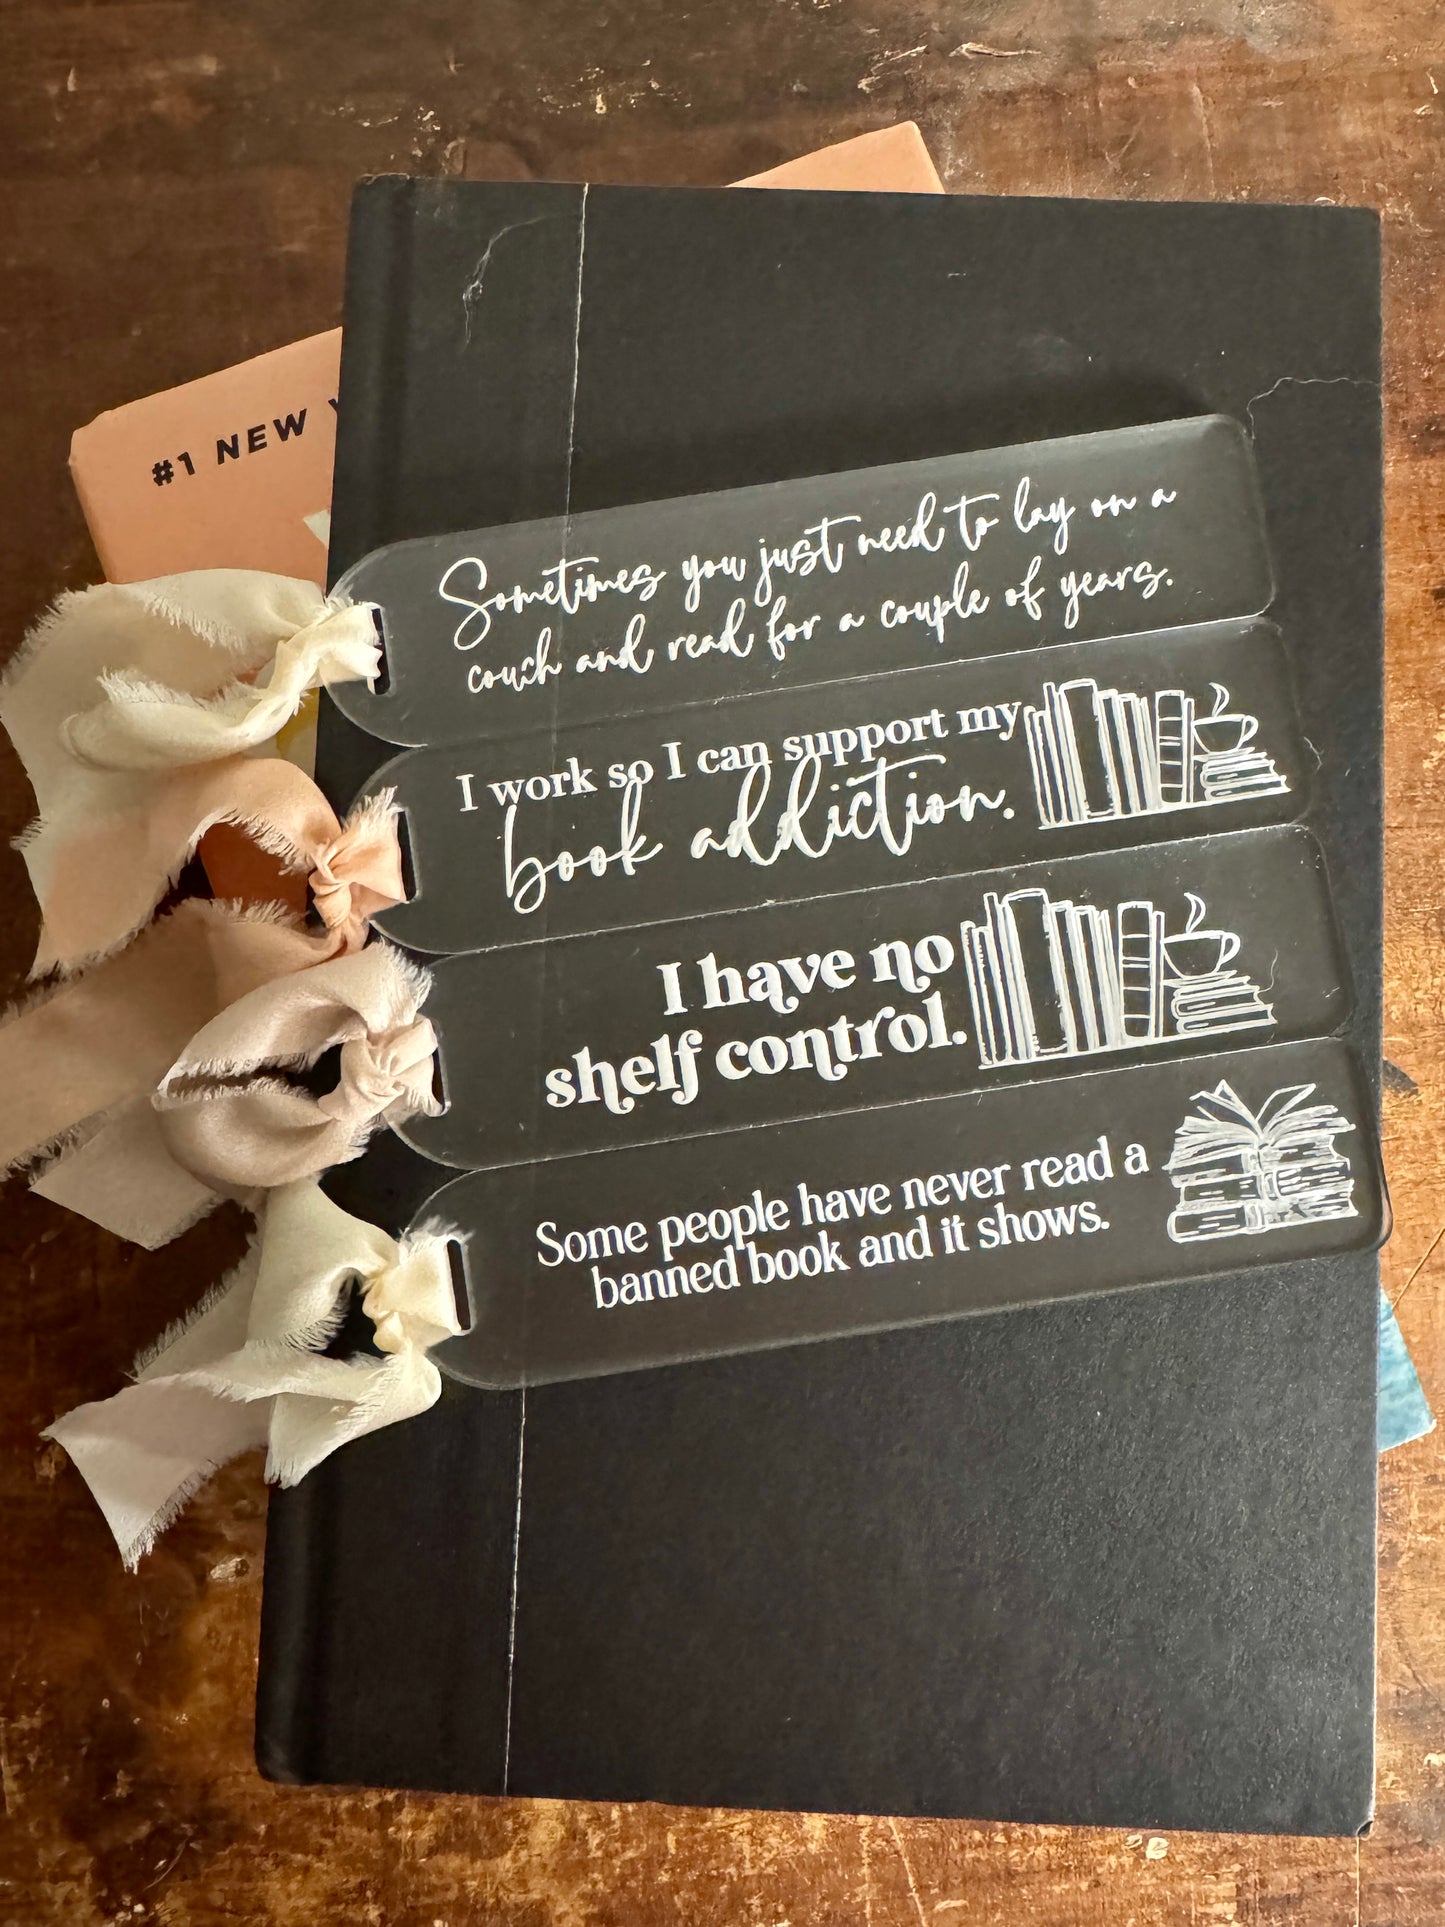 #1 NEW
Sometimes you just need to lay on a
couch and read for a couple of years.
I work so I can support my
book addiction.
I have no
shelf control.
Some people have never read a
banned book and it shows.